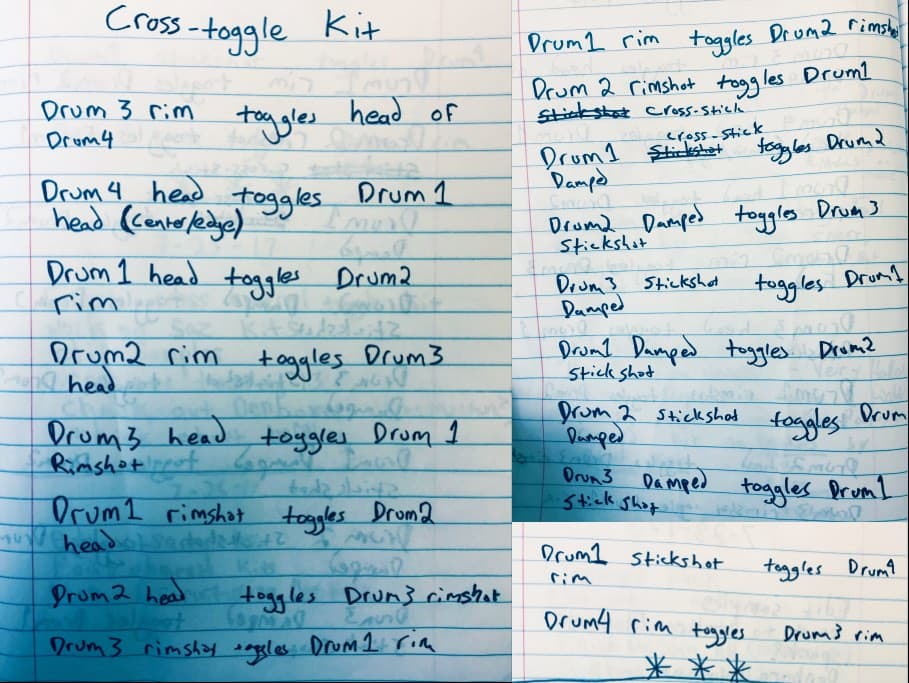 Cross-toggle Kit
Drum 3 rim toggles head of
Drum4
Drum4 head toggles Drum 1
head (center/edge)
Drum 1 head toggles Drum2
rim
Drum2 rim toggles Drum3
head
Drum3 head toggles Drum 1
Rimshot
Drum1 rimshot toggles Drum2
head
Drum2 head toggles Drum3 rimshot
Drum3 rimshot toggles Drum1 rim
Drum1 rim toggles Drum2 rimshot
Drum 2 rimshot toggles Drum1
Stickshot Cross-stick
cross-stick
Drum1 Stickshot toggles Drum2
Damped
Drum2 Damped toggles Drum3
Stickshot
Drum3 Stickshot toggles Drum1
Damped
Drum1 Damped toggles Drum2
stickshot
Drum 2 stickshot toggles Drum
Damped
Drum3 Damped toggles Drum1
Stickshot
Drum1 stickshot toggles Drum4
rim
Drum4 rim toggles Drum3 rim
* * *